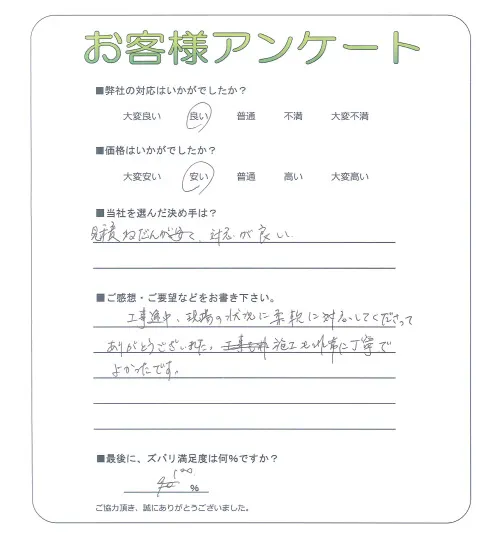 お客様アンケート
■弊社の対応はいかがでしたか？
大変良い 良い 普通 不満 大変不満
■価格はいかがでしたか？
大変安い 安い 普通 高い 大変高い
■当社を選んだ決め手は？
見積ねだんが安くて、対応が良い
■ご感想・ご要望などをお書き下さい。
工事途中、現場の状況に柔軟に対応してくださって
ありがとうございました。施工も非常に丁寧で
よかったです。
■最後に、ズバリ満足度は何％ですか？
100
％
ご協力頂き、誠にありがとうございました。